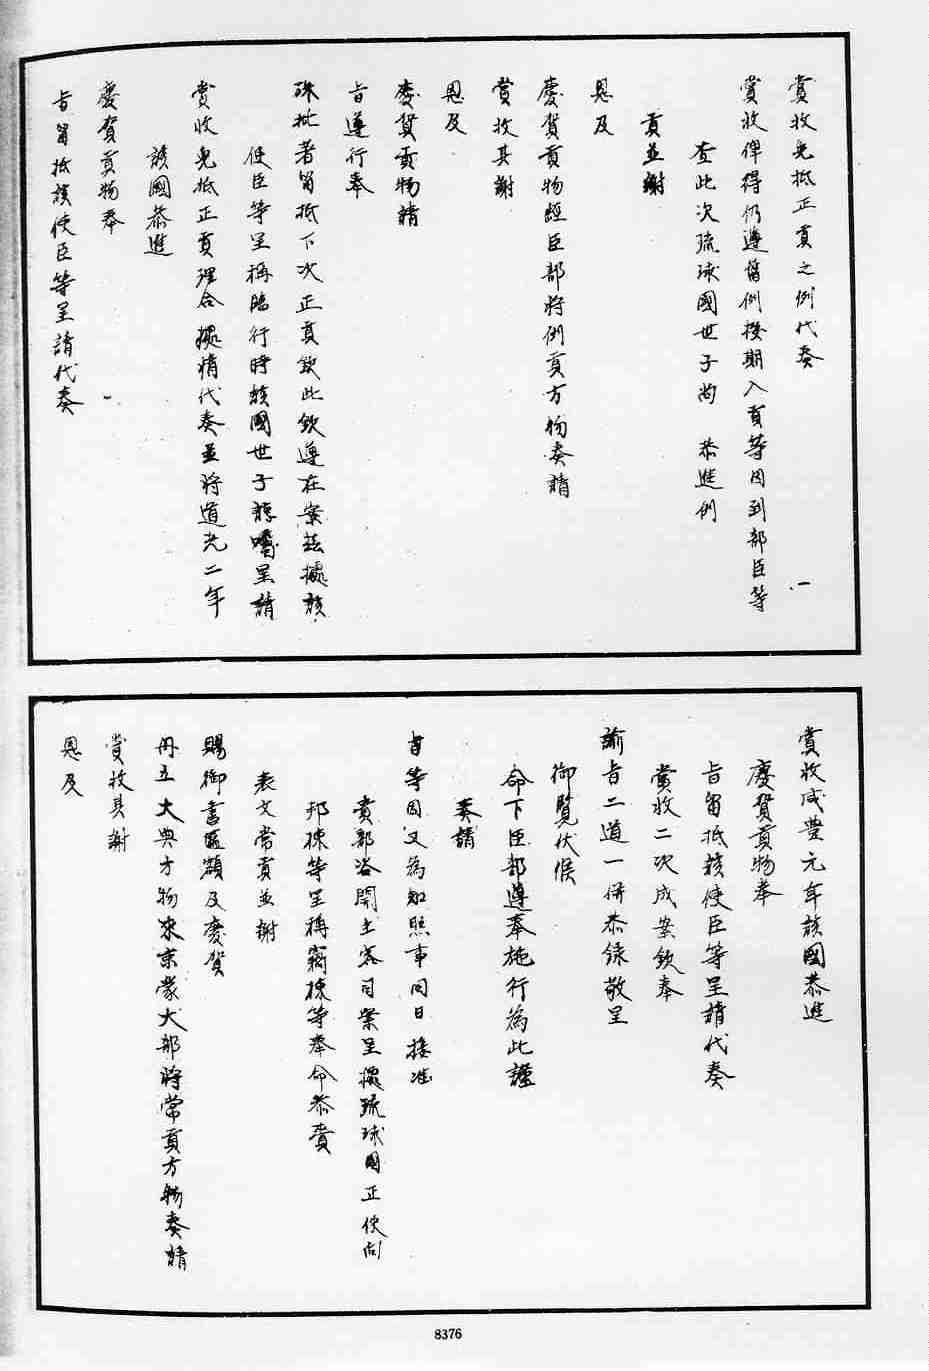 賞收免抵正貢之例代奏
賞收俾得仍遵舊例按期入貢等因到部臣等
查此次琉球國世子尚　恭進例
貢並謝
恩及
慶賀貢物經臣部將例貢方物奏請
賞收其謝
恩及
慶賀貢物請
旨遵行奉
硃批著留抵下次正貢欽此欽遵在案茲據該
使臣等呈稱臨行時該國世子諄囑呈請
賞收免抵正貢理合據情代奏並將道光二年
該國恭進
慶賀貢物奉
旨留抵該使臣等呈請代奏
賞收咸豐元年該國恭進
慶賀貢物奉
旨留抵該使臣等呈請代奏
賞收二次成案欽奉
諭旨二道一併恭錄敬呈
御覽伏候
命下臣部遵奉施行為此謹
奏請
旨等因又為知照事同日接准
貴部咨開主客司案呈據琉球國正使向
邦棟等呈稱竊棟等奉命恭齎
表文常貢並謝
賜御書匾額及慶賀
冊立大典方物來京蒙大部將常貢方物奏請
賞收其謝
恩及
8376